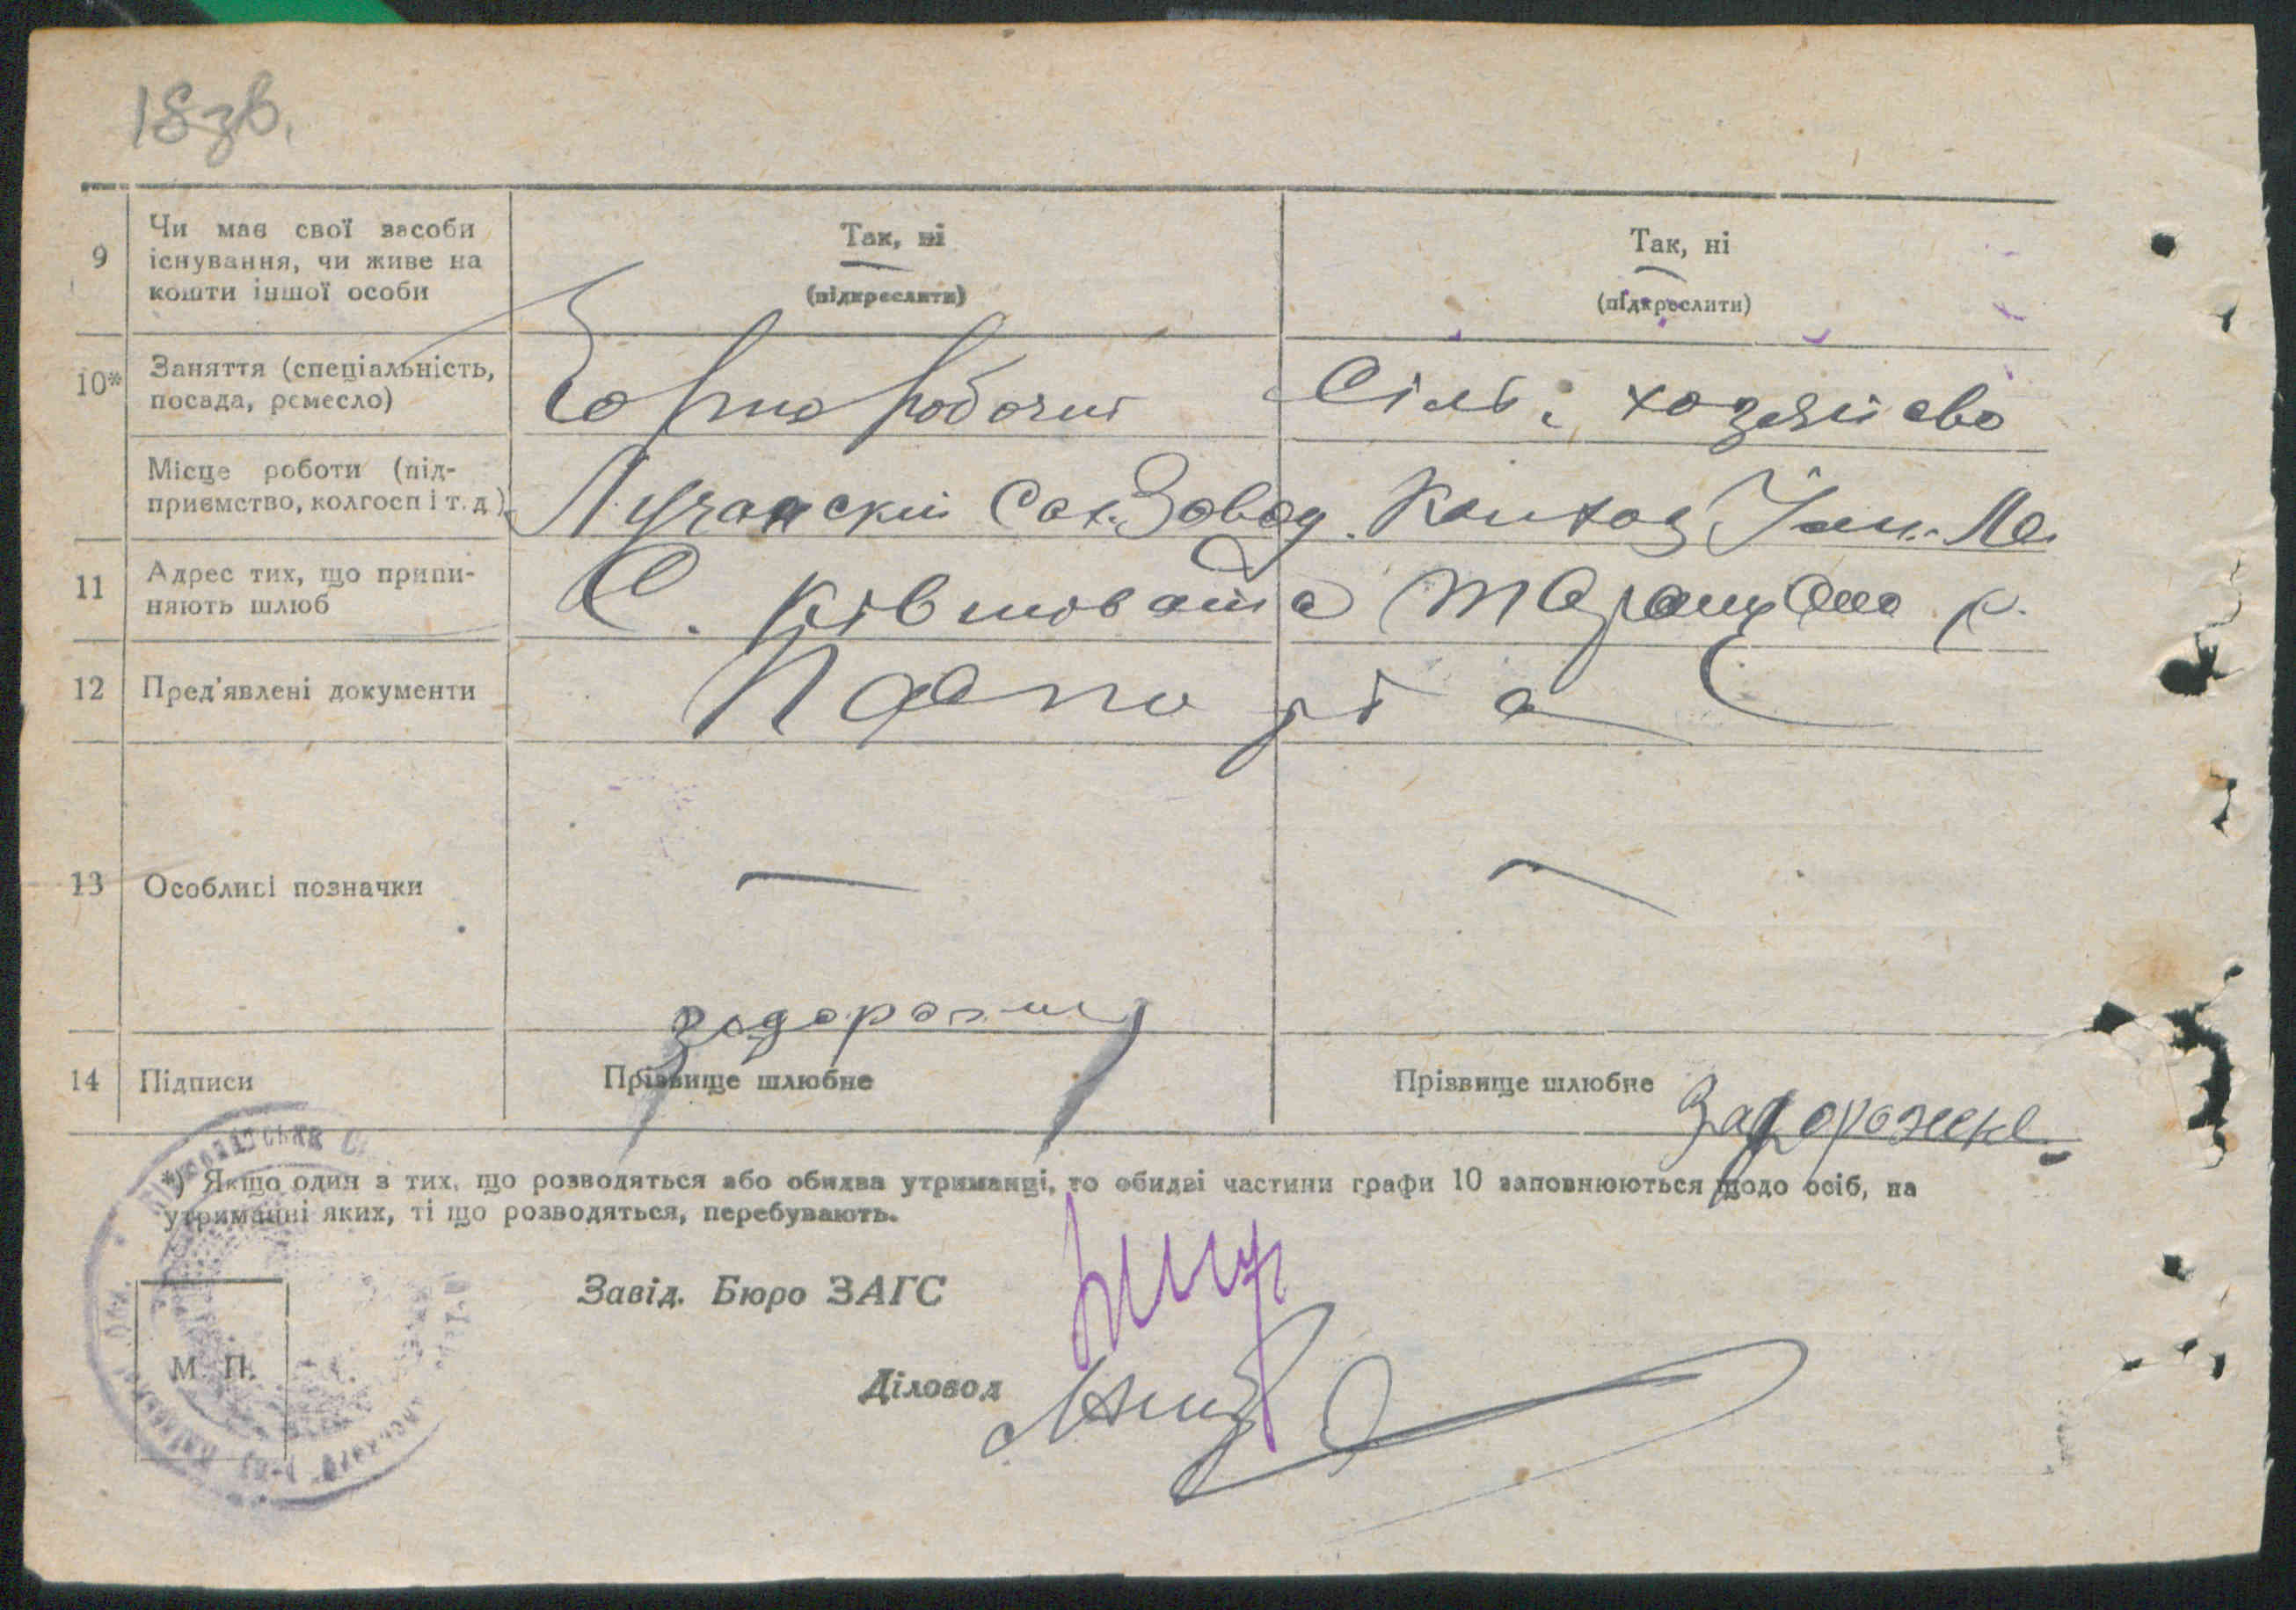 18зв.
9 Чи має свої засоби існування, чи живе на кошти іншої особи
Так, ні
(підкреслити)
Так, ні
(підкреслити)
10* Заняття (спеціальність, посада, ремесло)
Чорно робочий
Сільс. хозяйсво
Місце роботи (підприємство, колгосп і т. д.)
Лучанский Сах. Завод.
Колхоз
11 Адрес тих, що припиняють шлюб
С. Ківшовата Таращан р.
12 Пред'явлені документи
Паспорта
13 Особливі позначки
—
—
14 Підписи
Задорожний
Прізвище шлюбне
Прізвище шлюбне Задорожня
*) Якщо один з тих, що розводяться або обидва утриманці, то обидві частини графи 10 заповнюються щодо осіб, на
утриманні яких, ті що розводяться, перебувають.
Завід. Бюро ЗАГС
Діловод
М. П.